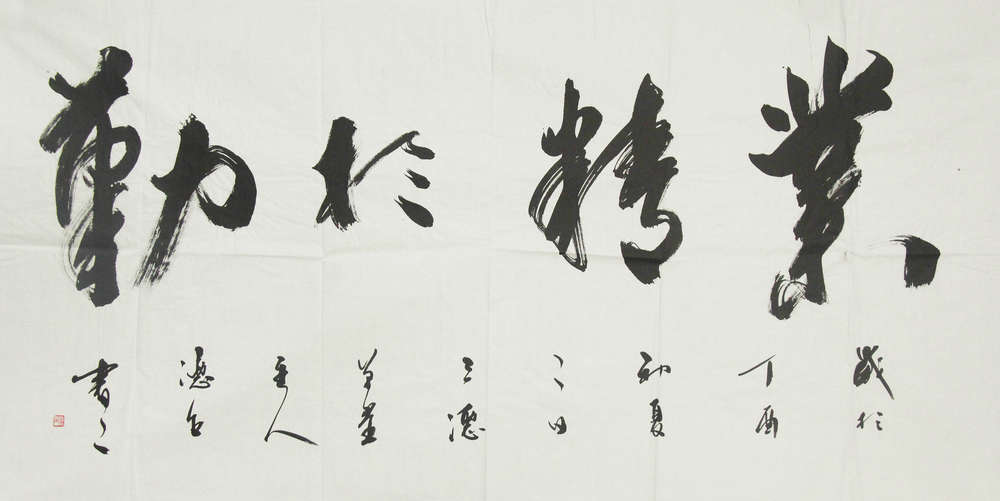 業精於勤
歲於
丁酉
初夏
之日
三德
草堂
主人
德
書之